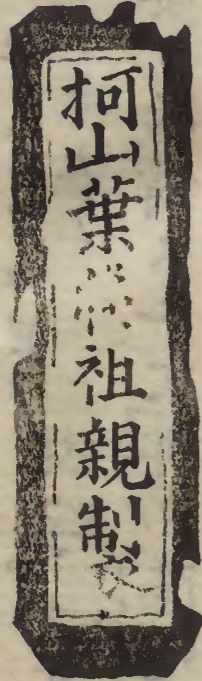 柯山葉祖親製